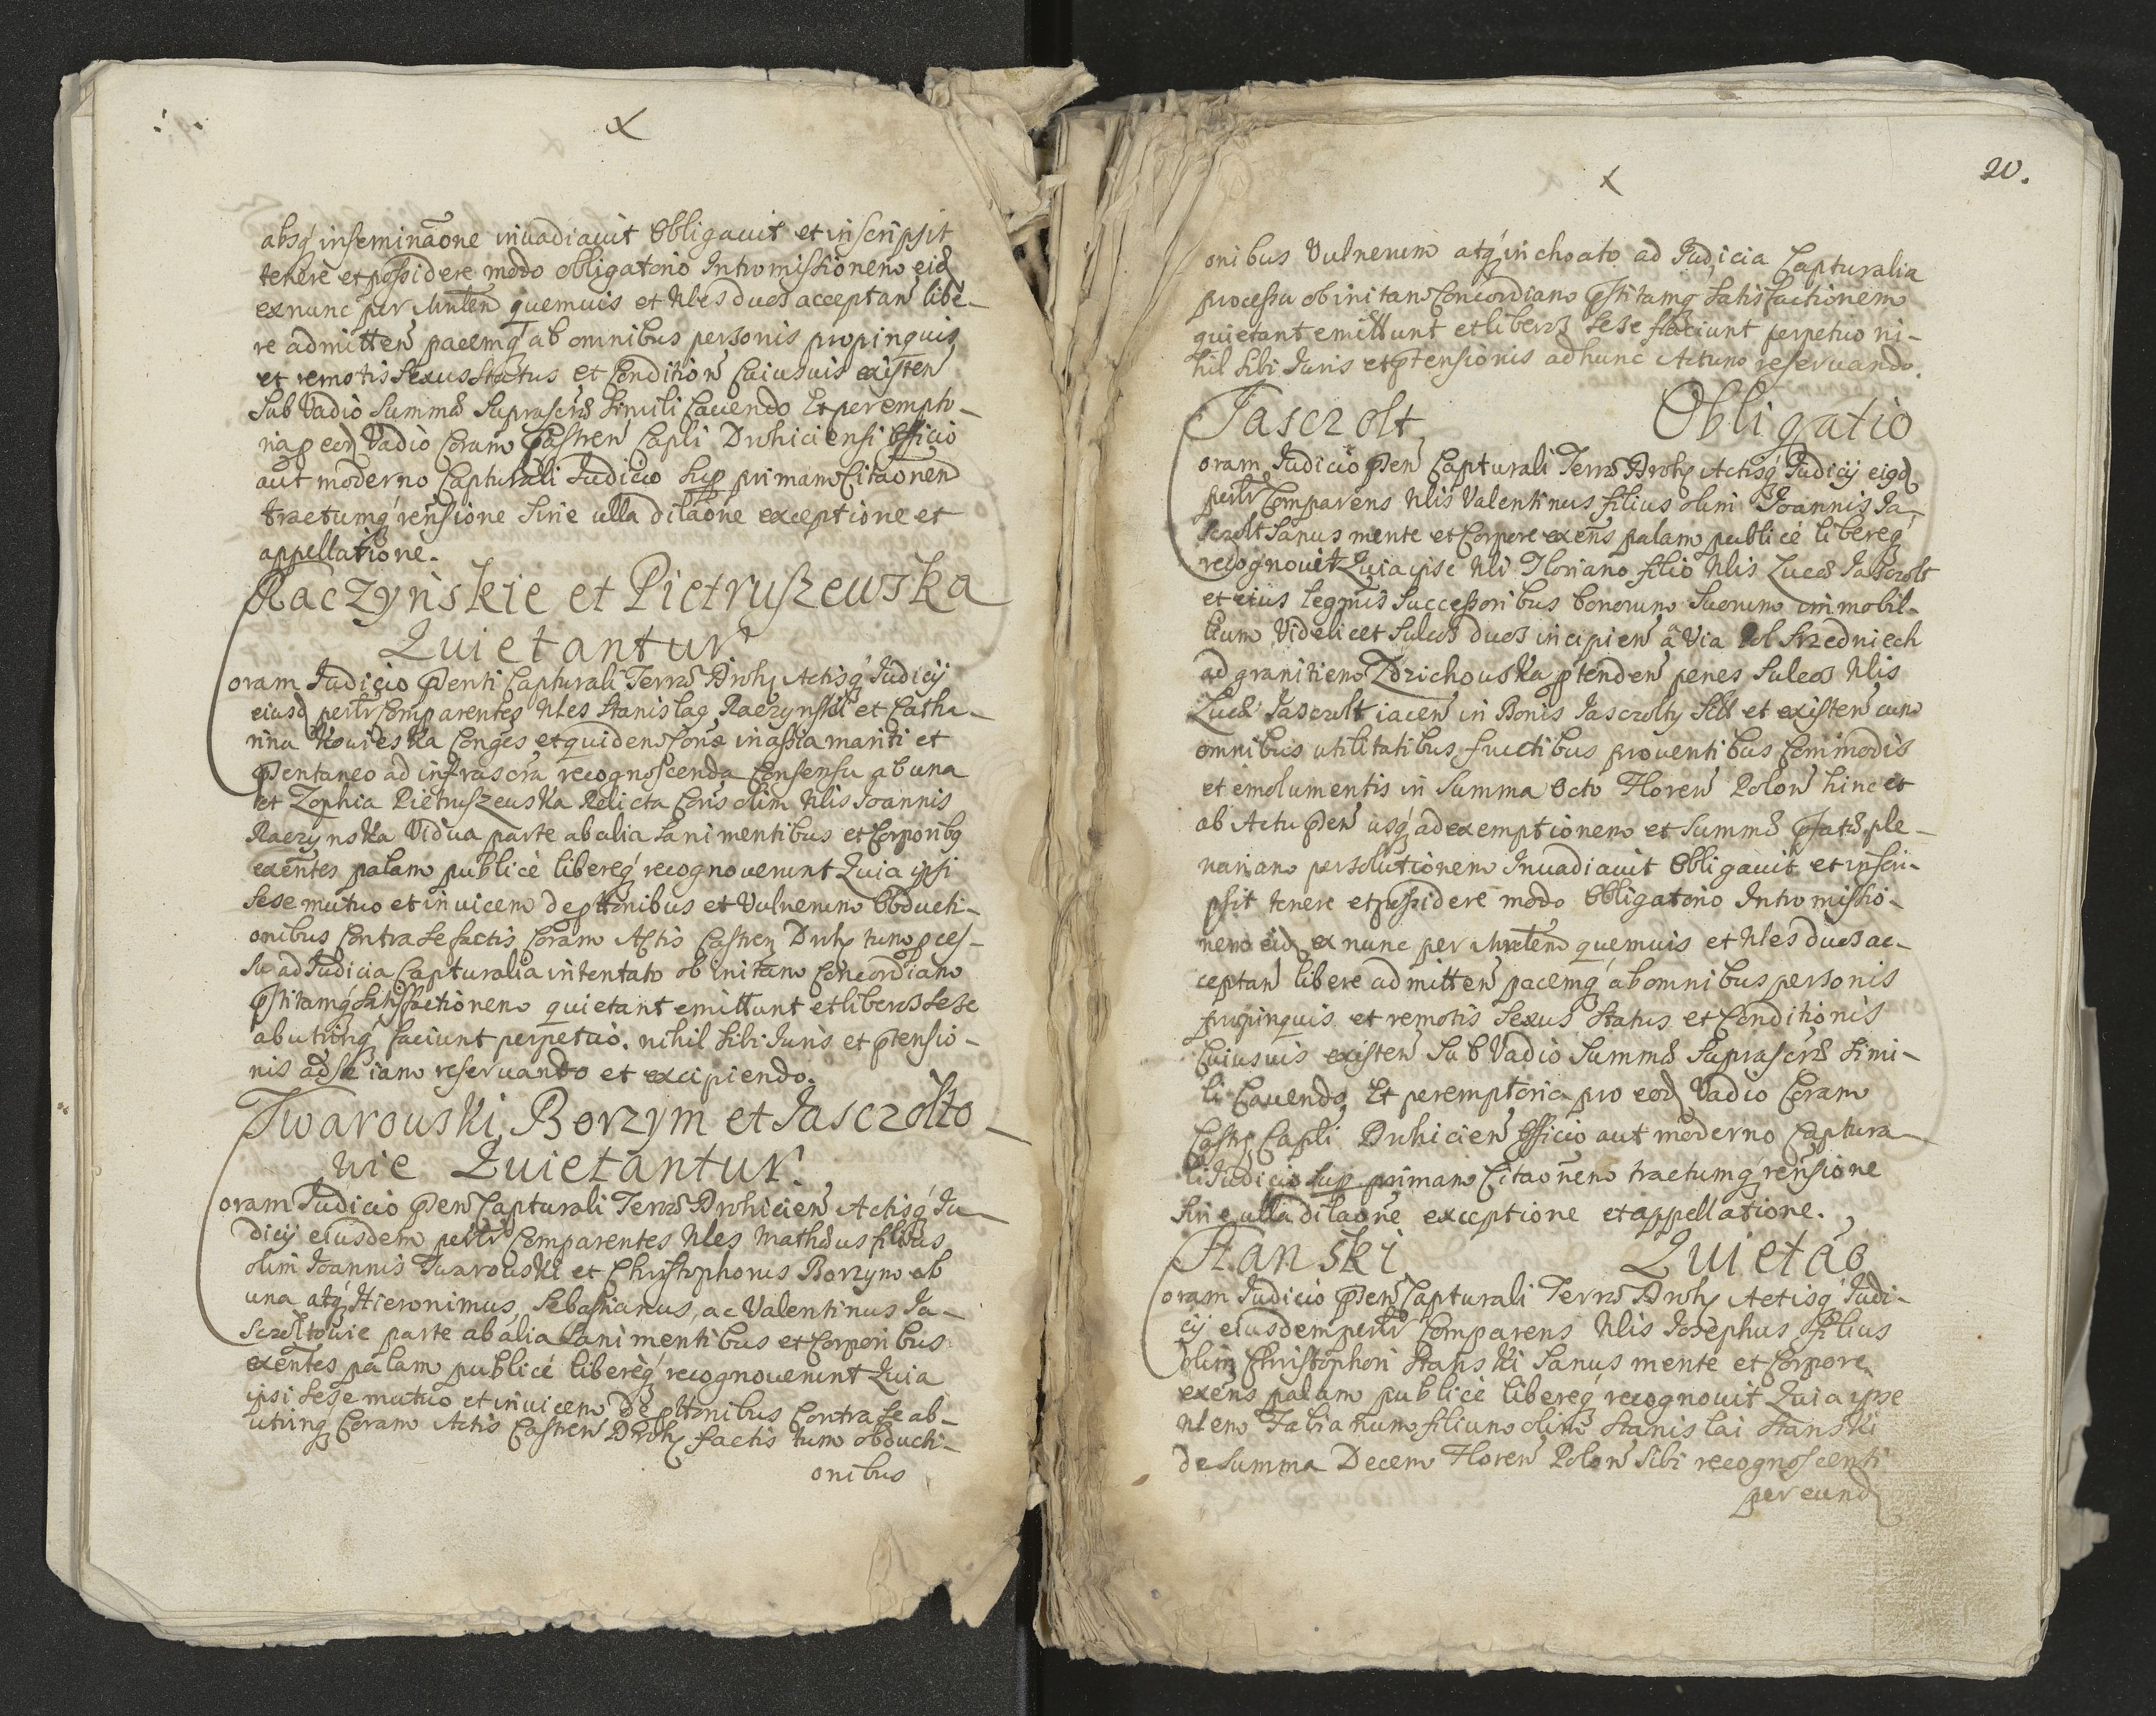 absq́ inseminãone inuadiauit Obligauit et inscripsit
tenere et possidere modo obligatorio Intromissionem eid
exnunc per Mnlem quemuis et Nles duos acceptan libe-
re admitten pacemq́ ab omnibus personis propinquis
et remotis Sexus Status et Condition Cuiusuis existen
Sub Vadio Summæ Suprascræ Simili Cauendo Et perempto-
ria p eod Vadio Coram Castren Capli Drohiciensi Officio
aut moderno Capturali Judicio sup primam Citaonem
tractumq́ reñsione Sine ulla dilaõne exceptione et
appellatione.
Raczynskie et Pietruszewska
Quietantur
oram Judicio Pñenti Capturali Terræ Droh Actisq́ Judicij
eiusd perlr Comparentes Nles Stanislaq Raczynski et Catha-
rina Kouieska Conges et quidem Conx in assia mariti et
Pñentaneo ad infrascra recognoscenda Consensu ab una
et Zophia Pietruszeuska Relicta Cons olim Nlis Joannis
Raczynska Vidua parte ab alia Sani mentibus et Corporibq
exentes palam publice libereq́ recognouerunt Quia ipsi
Sese mutuo et inuicem de pttonibus et Vulnerum Obducti-
onibus Contra se factis Coram Actis Castren Droh tum pces-
su ad Judicia Capturalia intentato ob initam Concordiam
pstitamq́ Satisfactionem quietant emittunt et liberos sese
ab utrinq́ faciunt perpetuo. nihil Sibi Juris et ptensio-
nis ad se iam reseruando et excipiendo.
Twarouski, Borzym et Jasczolto-
wie Quietantur.
oram Judicio Pñen Capturali Terræ Drohicien Actisq́ Ju-
dicij eiusdem perlr Comparentes Nles Mathæus filius
olim Joannis Twarouski et Christophorus Borzym ab
una atq́ Hieronimus, Sebastianus, ac Valentinus Ja-
sczoltouie parte ab alia Sani mentibus et Corporibus
exentes palam publice libereq́ recognouerunt Quia
ipsi Sese mutuo et inuicem de pttonibus Contra se ab-
utrinq Coram Actis Castren Droh factis tum obducti-
onibus
20.
onibus Vulnerum atq́ inchoato ad Judicia Capturalia
processu ob initam Concordiam pstitamq́ Satisfactionem
quietant emittunt et liberos sese faciunt perpetuo ni-
hil Sibi Juris et ptensionis ad hunc Actum reseruando.
Jasczolt Obligatio
oram Judicio Pñen Capturali Terræ Droh Actisq́ Judicij eiqd
perlr Comparens Nlis Valentinus filius olim Joannis Ja-
sczolt Sanus mente et Corpore exens palam publice libereq́
recognouit Quia ipse Nli Floriano filio Nlis Lucæ Jasczolt
et eius legmis Successoribus bonorum Suorum immobil-
lium Videlicet Sulcos duos incipien a Via Pol Srzedniech
ad granitiem Zdzichouska ptenden penes Sulcos Nlis
Lucæ Jasczolt iacen in Bonis Jasczolty Sitt et existen cum
omnibus utilitatibus fructibus prouentibus Commodis
et emolumentis in Summa Octo Floren Polon hinc et
ab Actu Pñen usq́ ad exemptionem et Summæ Pfatæ ple-
nariam persolutionem Inuadiauit Obligauit et inscri-
psit tenere et possidere modo Obligatorio Intromissio-
nem eid ex nunc per Mnlem quemuis et Nles duos ac-
ceptan libere admitten pacemq́ ab omnibus personis
propinquis et remotis Sexus Status et Conditionis
Cuiusuis existen Sub Vadio Summæ Suprascræ Simi-
li Cauendo, Et peremptoria pro eod Vadio Coram
Castr Capli Drohicien Officio aut moderno Captura-
li Judicio sup primam Citaonem tractumq́ reñsione
Sine ulla dilaõne exceptione et appellatione.
Stanski Quietao
oram Judicio Pñen Capturali Terræ Droh Actisq́ Judi-
cij eiusdem perlr Comparens Nlis Josephus Filius
olim Christophori Stanski Sanus mente et Corpore
exens palam publice libereq́ recognouit Quia ipse
Nlem Fabianum filium olim Stanislai Stanski
de Summa Decem Floren Polon Sibi recognoscenti
per eund